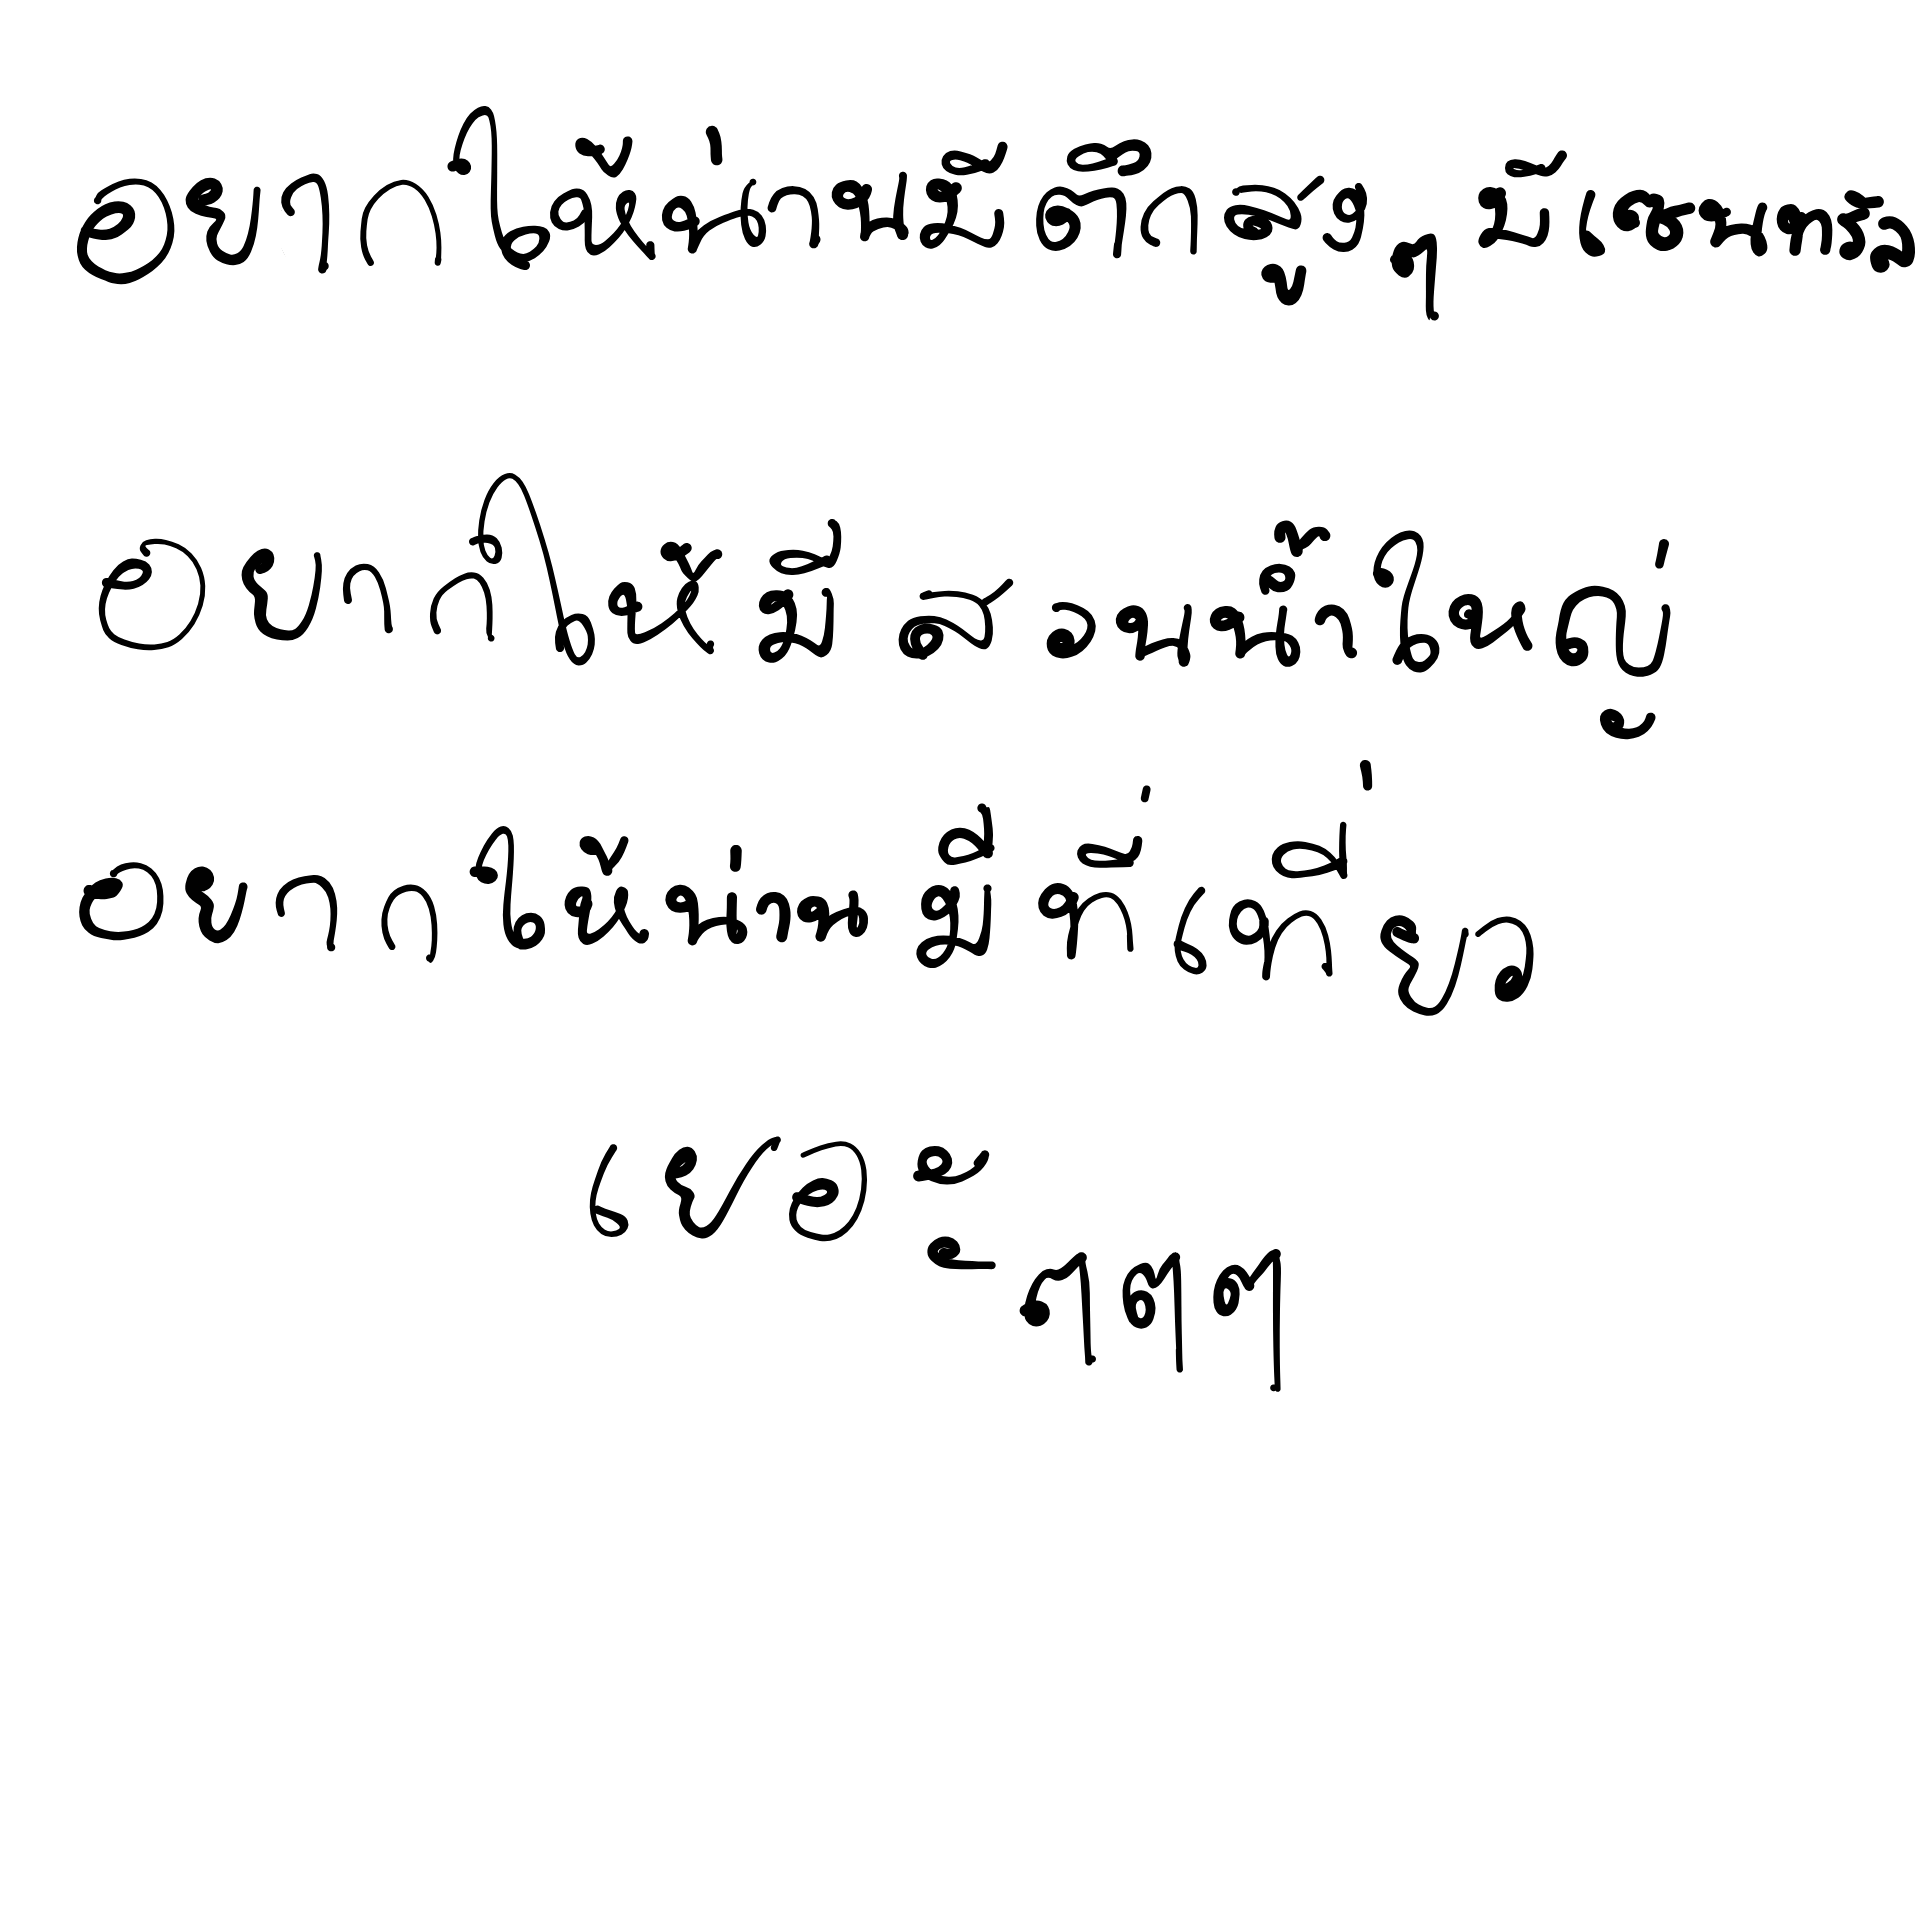 อยากให้น่านมีตึกสูงๆ มีเซนทรัล
อยากให้มีสวนน้ำใหญ่
อยากให้น่านมีที่เที่ยว
เยอะๆๆๆ